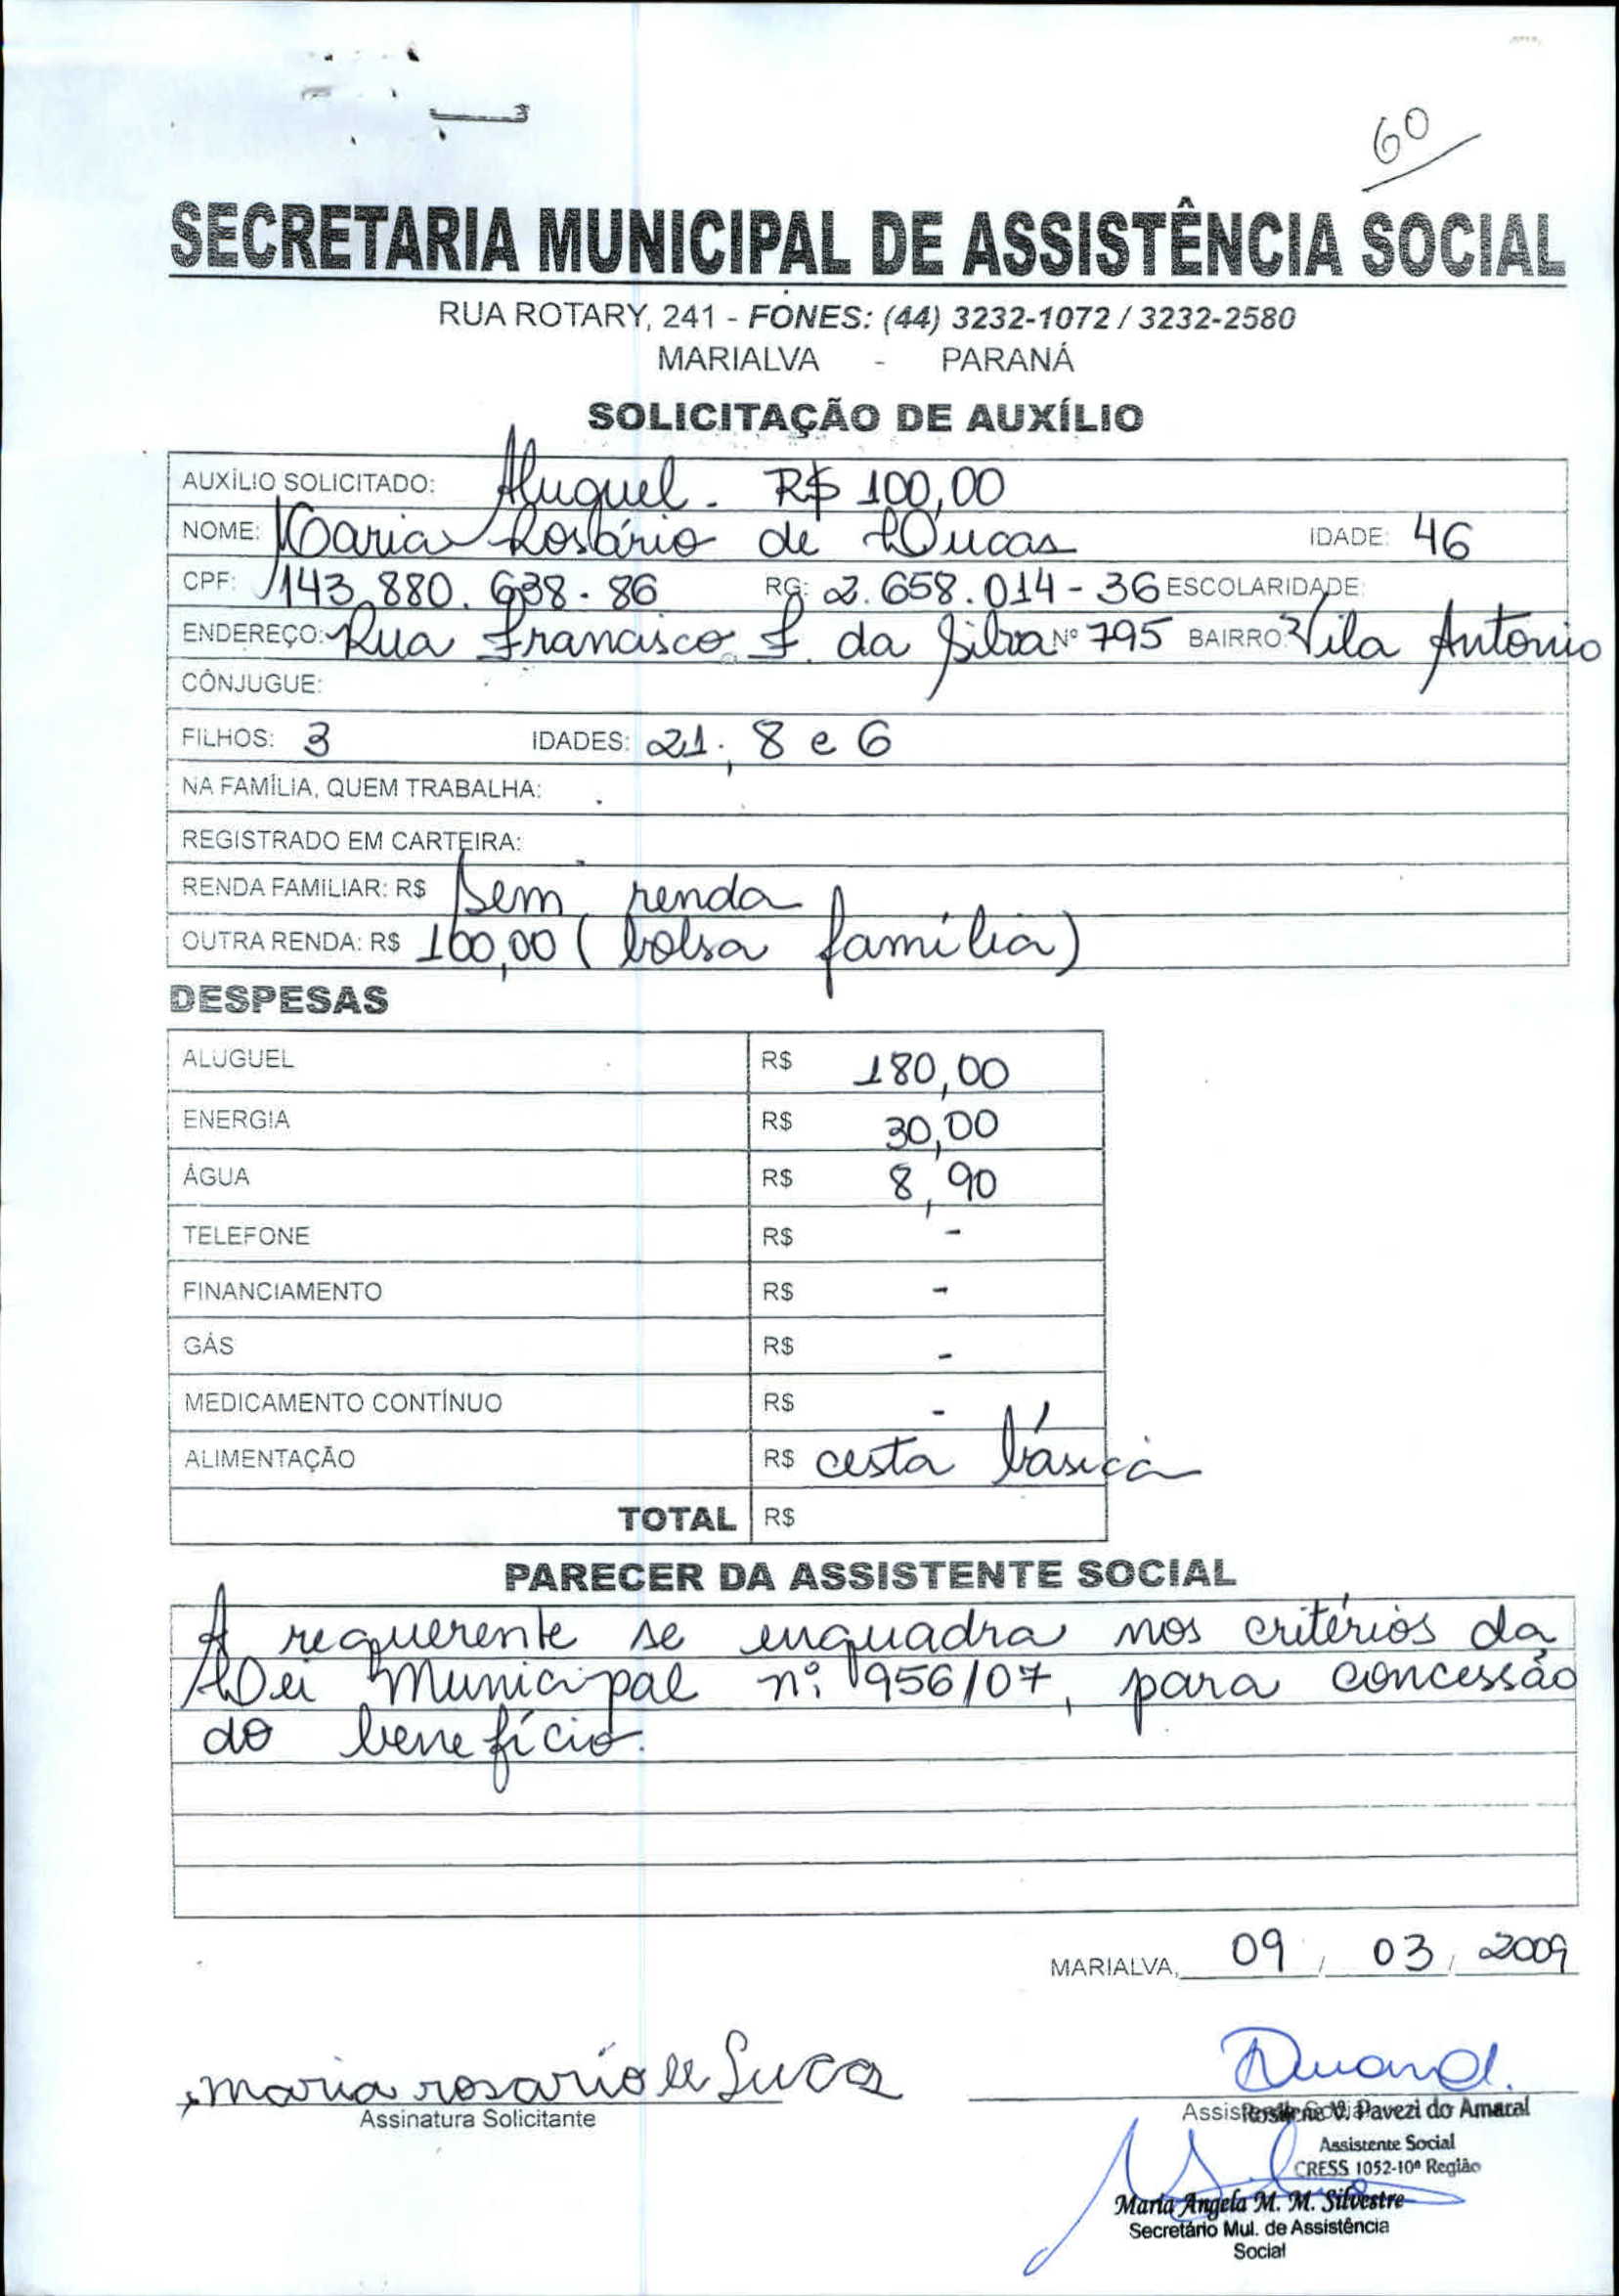 60
SECRETARIA MUNICIPAL DE ASSISTÊNCIA SOCIAL
RUA ROTARY, 241 - FONES: (44) 3232-1072 / 3232-2580
MARIALVA - PARANÁ
SOLICITAÇÃO DE AUXÍLIO
AUXÍLIO SOLICITADO: Aluguel. R$ 100,00
NOME: Maria Rosário de Lucas IDADE: 46
CPF: 143.880.638-86 RG: 2.658.014-36 ESCOLARIDADE:
ENDEREÇO: Rua Francisco F. da Silva Nº 795 BAIRRO: Vila Antonio
CÔNJUGUE:
FILHOS: 3 IDADES: 21, 8 e 6
NA FAMÍLIA, QUEM TRABALHA:
REGISTRADO EM CARTEIRA:
RENDA FAMILIAR: R$ Sem renda
OUTRA RENDA: R$ 100,00 (bolsa família)
DESPESAS
ALUGUEL R$ 180,00
ENERGIA R$ 30,00
ÁGUA R$ 8,90
TELEFONE R$ -
FINANCIAMENTO R$ -
GÁS R$ -
MEDICAMENTO CONTÍNUO R$ -
ALIMENTAÇÃO R$ cesta básica
TOTAL R$
PARECER DA ASSISTENTE SOCIAL
A requerente se enquadra nos critérios da
Lei Municipal nº 956/07, para concessão
do benefício.
MARIALVA, 09 / 03 / 2009
maria rosario de Luca
Assinatura Solicitante
Rosilene V. Pavezi do Amaral
Assistente Social
CRESS 1052-10ª Região
Maria Angela M. M. Silvestre
Secretário Mul. de Assistência
Social